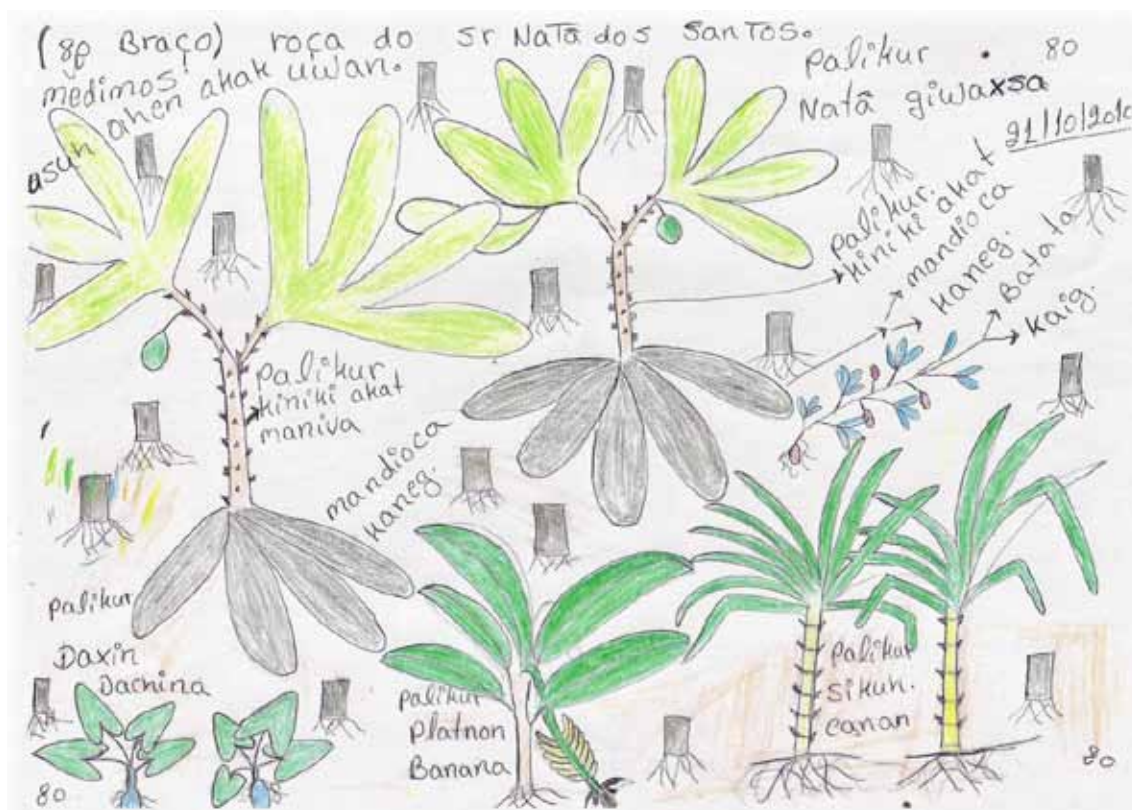 (80 Braço) roça do sr Natã dos Santos.
medimos
asuh ahen akak uwan.
Palikur
Natã giwaxsa
80
21/10/2010
Palikur.
kiniki akat
mandioca
kaneg.
Batata
kaig.
Palikur
kiniki akat
maniva
mandioca
kaneg.
Palikur
Daxin
Dachina
Palikur
Platnon
Banana
Palikur
sikuh.
canan
80
80